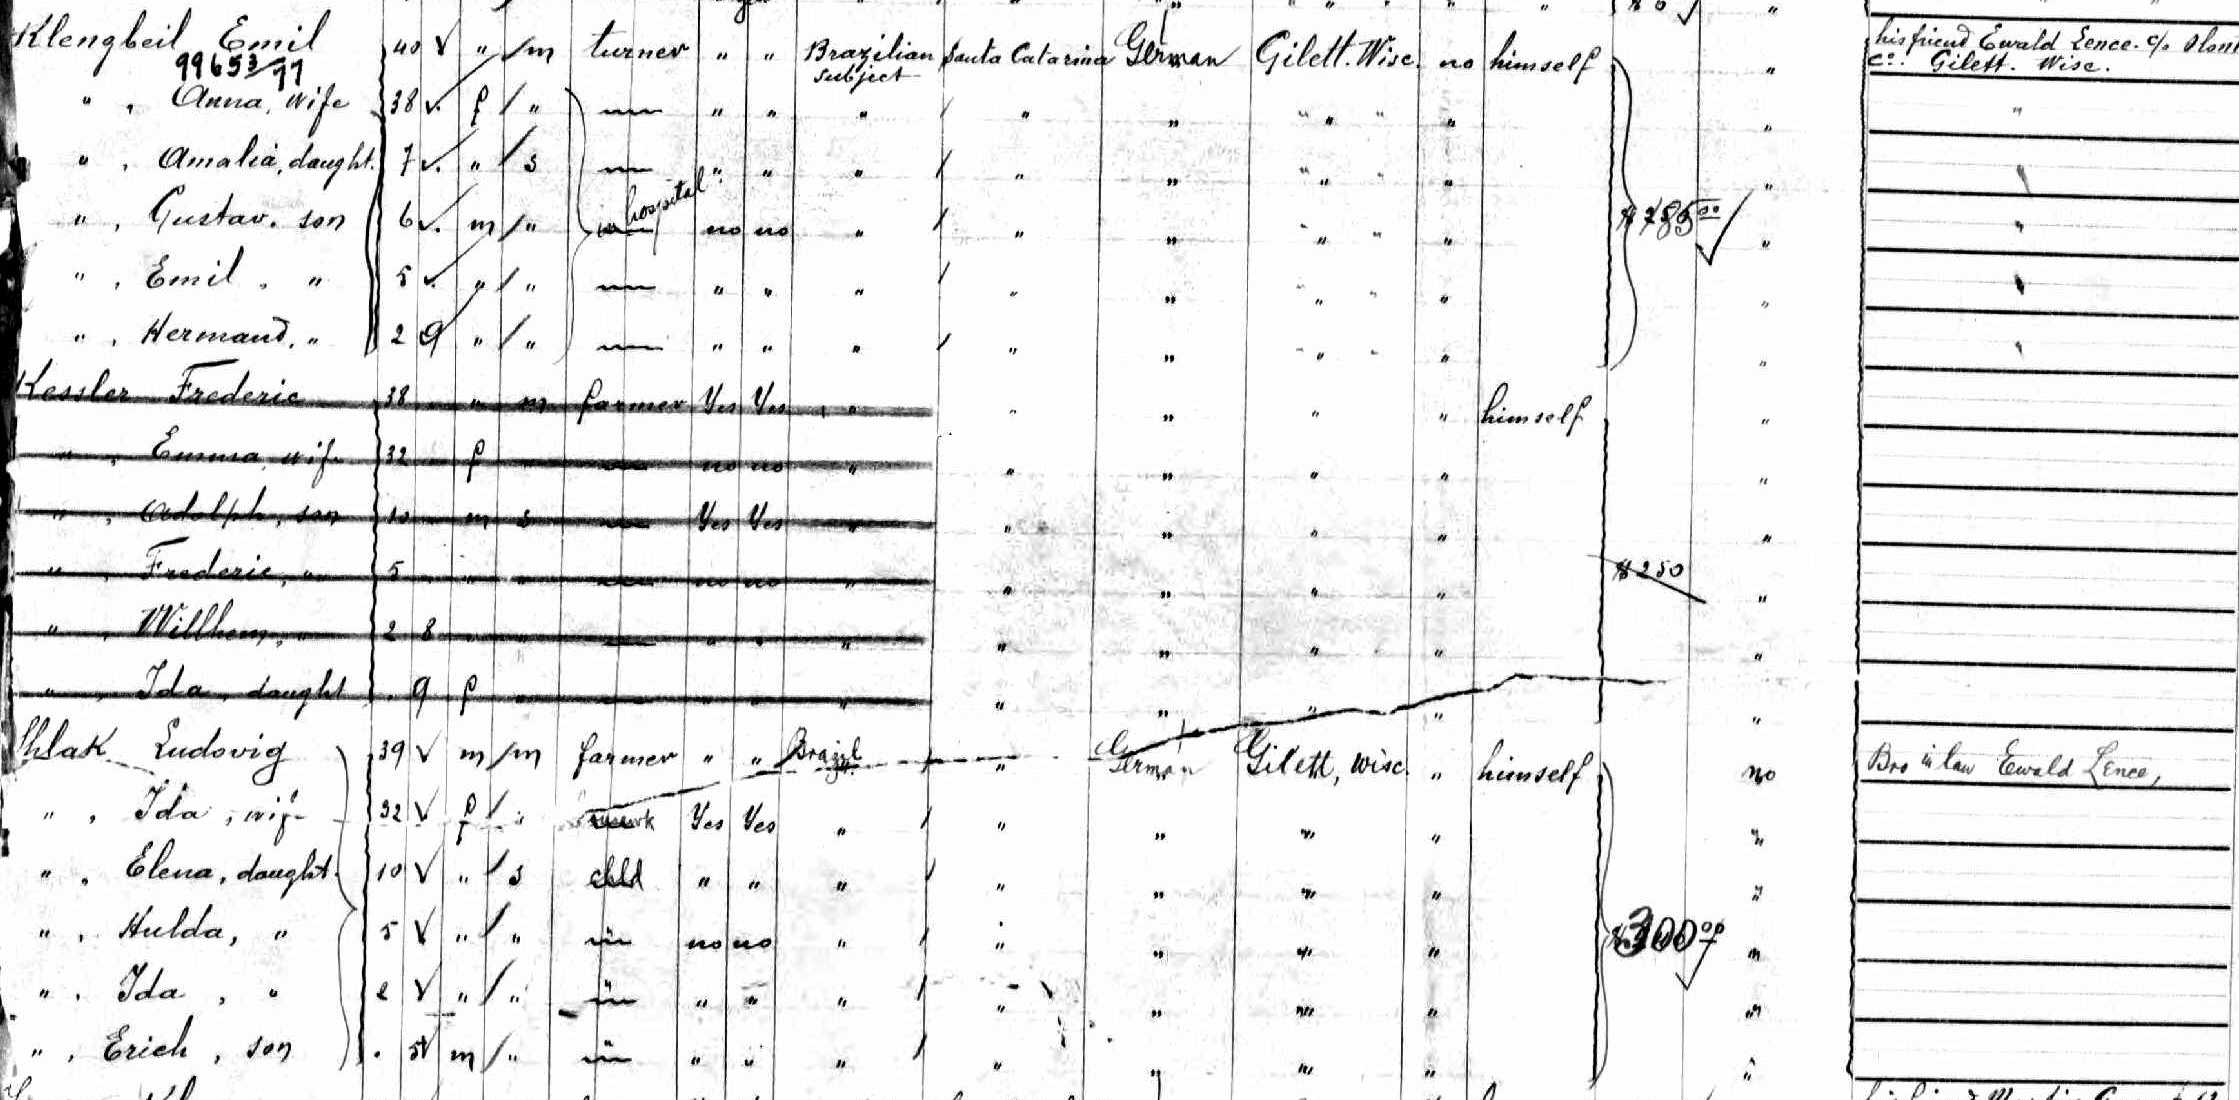 Klengbeil Emil 40 " m turner " " Brazilian subject Santa Catarina German Gilett. Wisc. no himself " his friend Ewald Lence. c/o
99653/77 Co. Gilett. Wisc.
" , Anna, wife 38 f " — " " " " " " " " "
" , Amalia, daught. 7 " s — " " " " " " " "
" , Gustav. son 6 m " in hospital no no " " " " " $785.00 " "
" , Emil , " 5 " " — " " " " " " " "
" , Hermand, " 2 9 " " — " " " " " " " "
Kessler Frederic 38 " m farmer Yes Yes " " " " " himself "
" , Emma, wife 32 f — no no " " " " " "
" , Adolph, son 10 m s — Yes Yes " " " " " "
" , Frederic, " 5 " " — no no " " " " " $250 "
" , Willhem, " 2 8 " " — " " " " " " " "
" , Ida, daught . 9 f " — " " " " " " " "
Ludovig 39 m m farmer " " Brazil " German Gilett, Wisc. " himself no Bro in law Ewald Lence,
" , Ida, wife 32 f Yes Yes " " " " " "
" , Elena, daught. 10 " s chld " " " " " " " "
" , Hulda, " 5 " " " no no " " " " " $300.00 "
" , Ida , " 2 " " " " " " " " " " "
" , Erich , son . 5 m " " " " " " " " " "